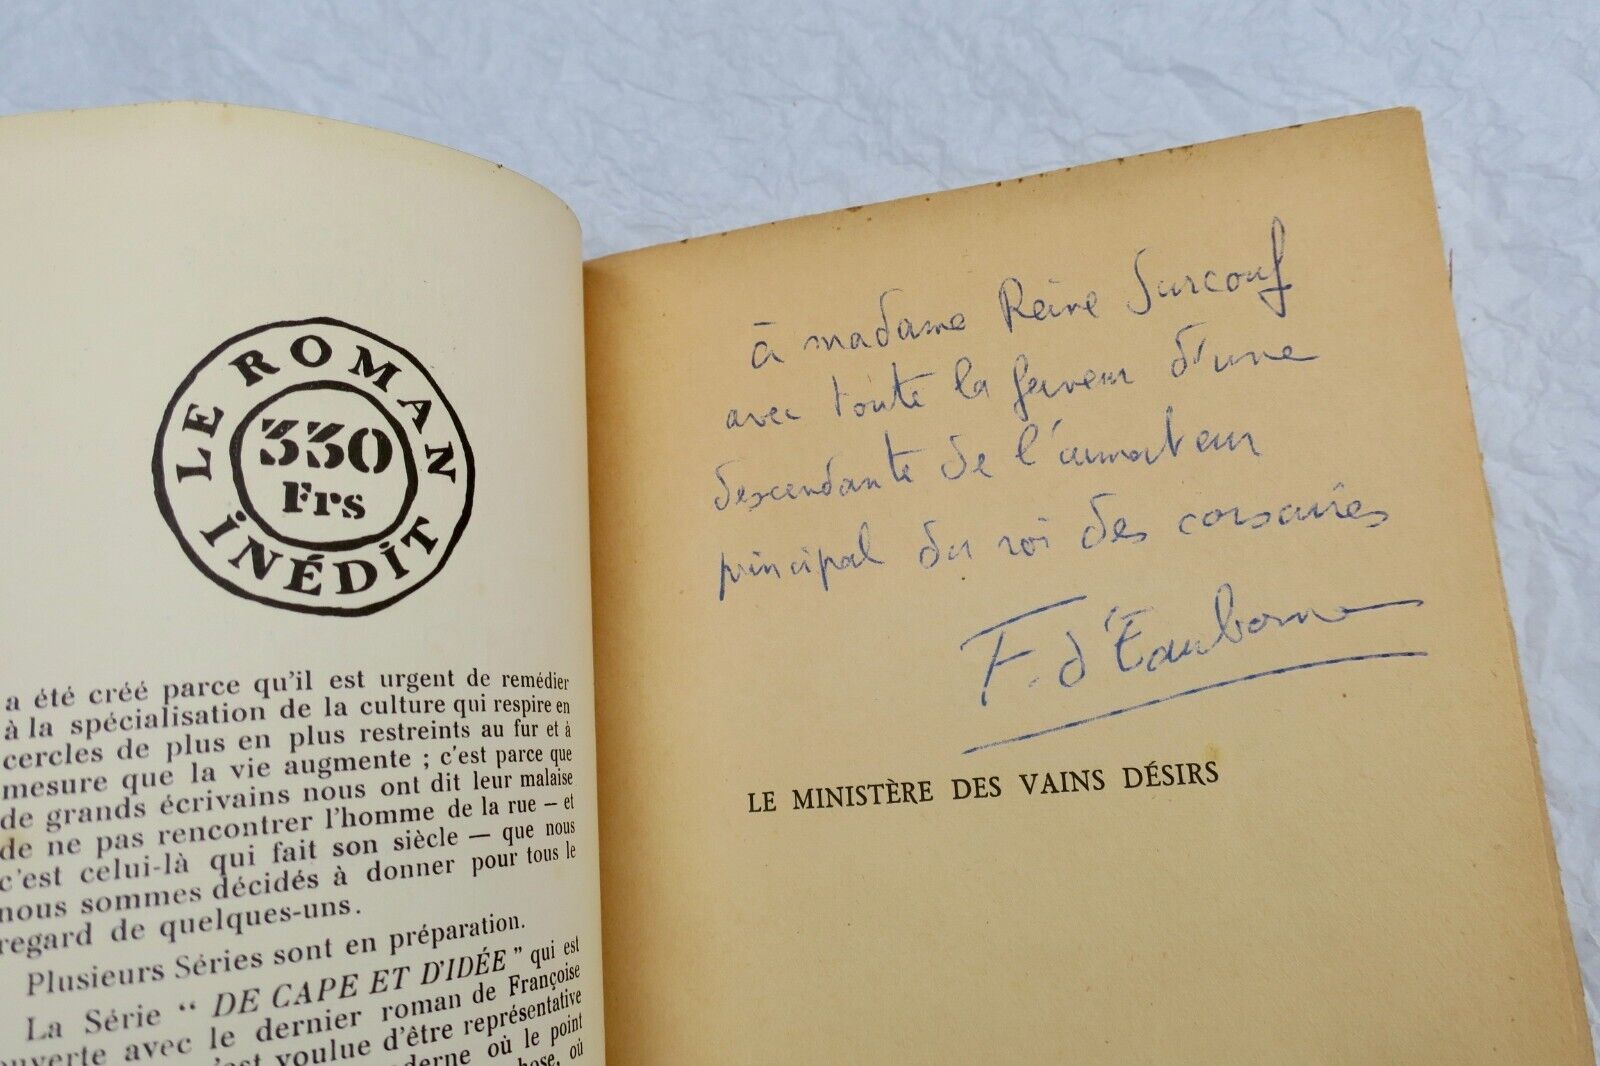 LE ROMAN
330
Frs
INÉDIT
a été créé parce qu'il est urgent de remédier
à la spécialisation de la culture qui respire en
cercles de plus en plus restreints au fur et à
mesure que la vie augmente ; c'est parce que
de grands écrivains nous ont dit leur malaise
de ne pas rencontrer l'homme de la rue — et
c'est celui-là qui fait son siècle — que nous
nous sommes décidés à donner pour tous le
regard de quelques-uns.
Plusieurs Séries sont en préparation.
La Série “ DE CAPE ET D'IDÉE ” qui est
ouverte avec le dernier roman de Françoise
c'est voulue d'être représentative
où le point
où
à madame Reine Surcouf
avec toute la ferveur d'une
descendante de l'armateur
principal du roi des corsaires
F. d'Eaubonne
LE MINISTÈRE DES VAINS DÉSIRS